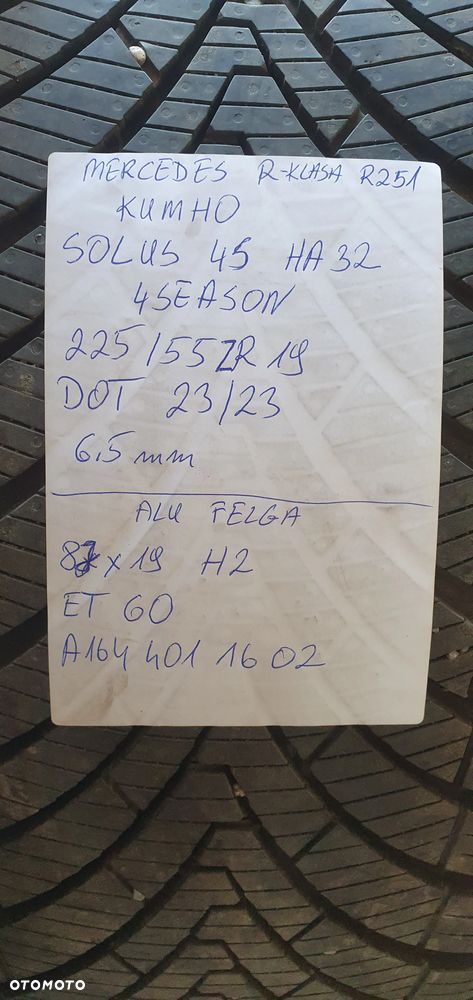 MERCEDES R-KLASA R251
KUMHO
SOLUS 4S HA32
4SEASON
225/55ZR19
DOT 23/23
6,5 mm
ALU FELGA
x19 H2
ET 60
A164 401 16 02
OTOMOTO